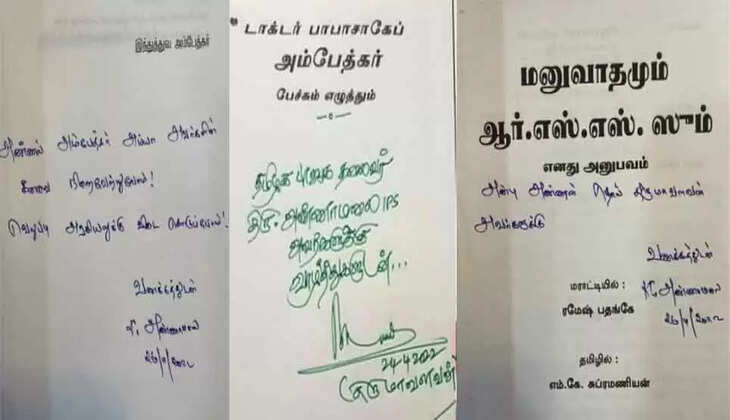 இந்துத்துவ அம்பேத்கர்
அண்ணல் அம்பேத்கர் அய்யா அவர்களின்
கனவை நிறைவேற்றுவோம்!
வெறுப்பு அரசியலுக்கு விடை கொடுப்போம்!
வணக்கத்துடன்
அண்ணாமலை
டாக்டர் பாபாசாகேப்
அம்பேத்கர்
பேச்சும் எழுத்தும்
தமிழக பாஜக தலைவர்
திரு. அண்ணாமலை IPS
அவர்களுக்கு
வாழ்த்துகளுடன்...
24-4-2022
திருமாவளவன்
மனுவாதமும்
ஆர்.எஸ்.எஸ். ஸும்
எனது அனுபவம்
அன்பு அண்ணன் தொல் திருமாவளவன்
அவர்களுக்கு
வணக்கத்துடன்
மராட்டியில் :
அண்ணாமலை
ரமேஷ் பதங்கே
தமிழில் :
எம்.கே. சுப்ரமணியன்